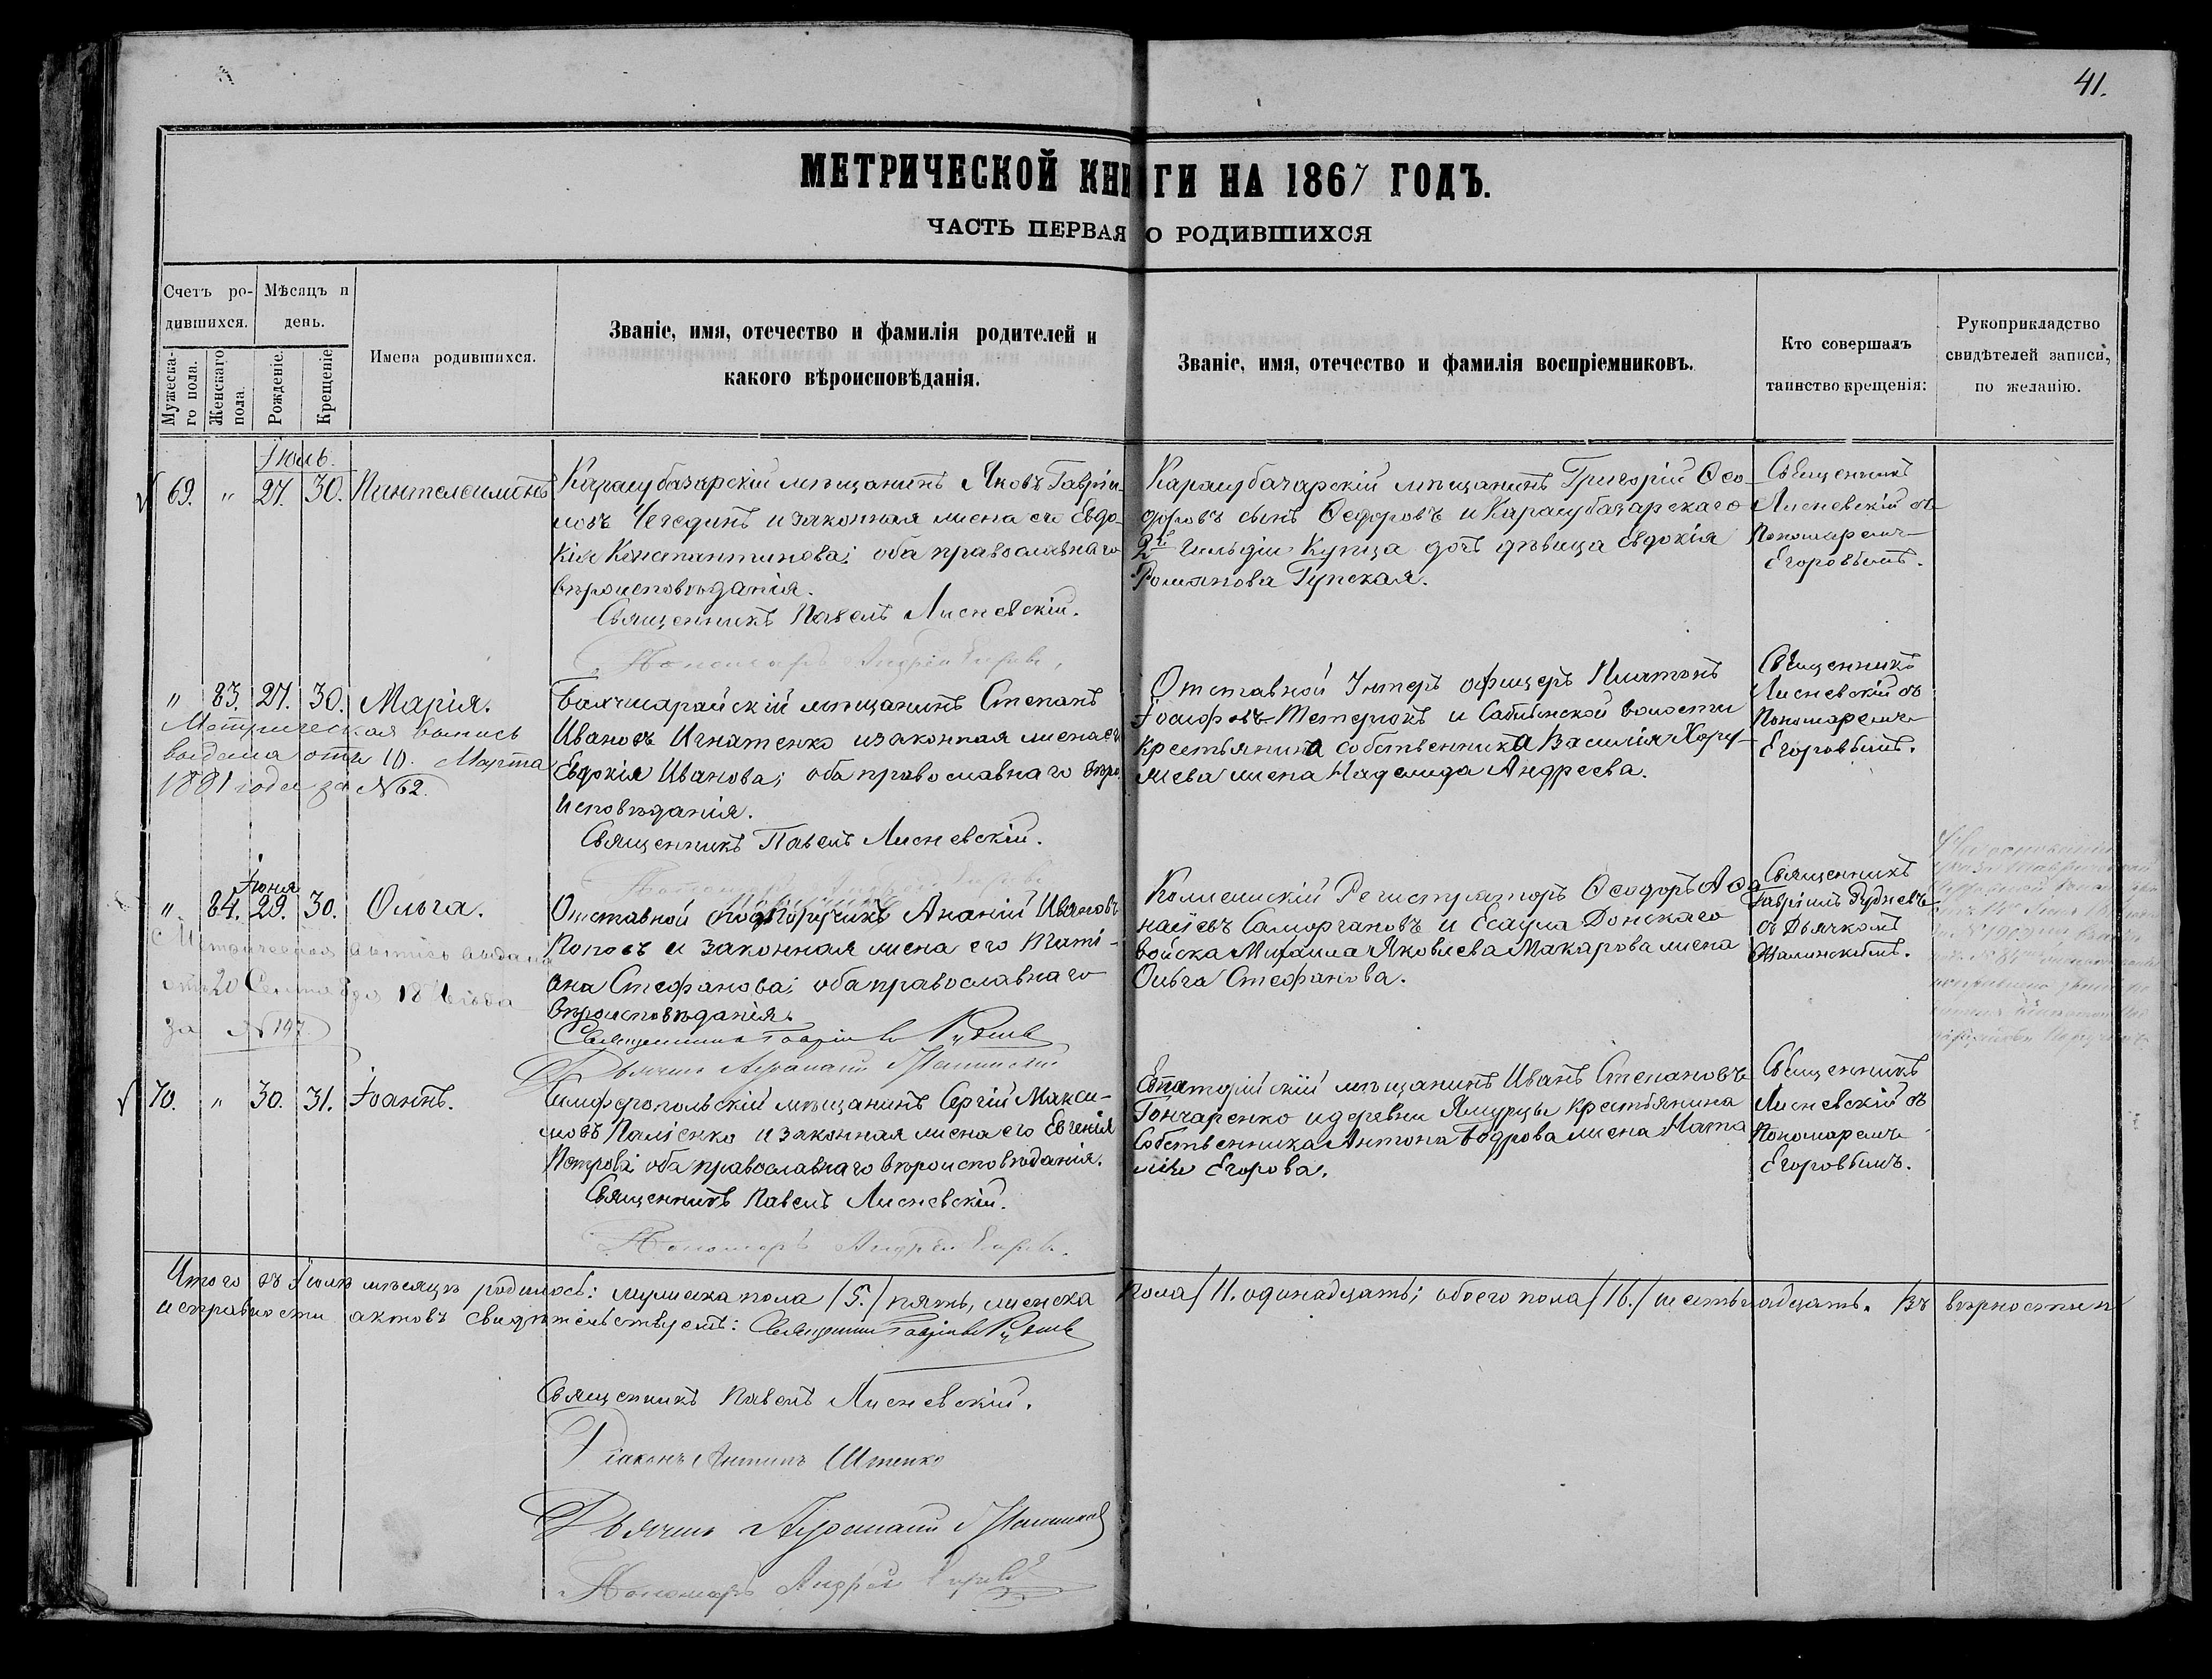 41.
МЕТРИЧЕСКОЙ КНИГИ НА 1867 ГОДЪ.
ЧАСТЬ ПЕРВАЯ О РОДИВШИХСЯ
Счетъ ро-
дившихся.
Мѣсяцъ и
день.
Мужеска-
го пола.
Женскаго
пола.
Рожденіе.
Крещеніе
Имена родившихся.
Званіе, имя, отечество и фамилія родителей и
какого вѣроисповѣданія.
Званіе, имя, отечество и фамилія воспріемниковъ.
Кто совершалъ
таинство крещенія:
Рукоприкладство
свидѣтелей записи,
по желанію.
Іюль.
69. " 27. 30. Пантелеимонъ
Карасубазарскій мѣщанинъ Яковъ Гаврі-
ловъ Чегединъ и законная жена его Евдо-
кія Константинова; оба православнаго
вѣроисповѣданія.
Священникъ Павелъ Лисневскій.
Пономарь Андрей
Карасубазарскій мѣщанинъ Григорій Ѳео-
доровъ сынъ Ѳедоровъ и Карасубазарскаго
2й гильдіи купца дочь дѣвица Евдокія
Романова Гупская.
Священникъ
Лисневскій съ
Пономаремъ
Егоровымъ.
" 83. 27. 30. Марія.
Метрическая выпись
выдана отъ 10. Марта
1881 года за №62.
Бахчисарайскій мѣщанинъ Степанъ
Ивановъ Игнатенко и законная жена его
Евдокія Иванова; оба православнаго вѣро
исповѣданія.
Священникъ Павелъ Лисневскій.
Отставной Унтеръ офицеръ Платонъ
Іосифовъ Тетерюкъ и Саблынской волости
крестьянина собственника Василія Хору-
жева жена Надежда Андреева.
Священникъ
Лисневскій съ
Пономаремъ
Егоровымъ.
Іюня
" 84. 29. 30. Ольга.
Метрическая выпись выдана
отъ 20 Сентября
за №197.
Отставной Подпоручикъ Ананій Ивановъ
Поповъ и законная жена его Татi-
ана Стефанова; оба православнаго
вѣроисповѣданія.
Священникъ Гавріилъ Рудневъ
Дьячекъ
Коллежскій Регистраторъ Ѳеодоръ Аѳа
насіевъ Саморгановъ и Есаула Донскаго
войска Михаила Яковлева Макарова жена
Ольга Стефанова.
Священникъ
Гавріилъ Рудневъ
съ Дьячкомъ
70. " 30. 31. Іоаннъ.
Симферопольскій мѣщанинъ Сергій Макси-
мовъ Паліенко и законная жена его Евгенія
Петрова; оба православнаго вѣроисповѣданія.
Священникъ Павелъ Лисневскій.
Пономарь Андрей
Евпаторійскій мѣщанинъ Иванъ Степановъ
Гончаренко и деревни Ямурцы крестьянина
Собственника Антона Бодрова жена Ната
лія Егорова.
Священникъ
Лисневскій съ
Пономаремъ
Егоровымъ.
Итого въ Іюлѣ мѣсяцѣ родилось: мужеска пола /5./ пять, женска пола /11. одинадцать; обоего пола /16./ шестьнадцать. Въ вѣрности и
исправности актовъ свидѣтельствуемъ: Священникъ Гавріилъ Рудневъ
Священникъ Павелъ Лисневскій.
Діаконъ Антипъ Штепко
Дьячекъ
Пономарь Андрей